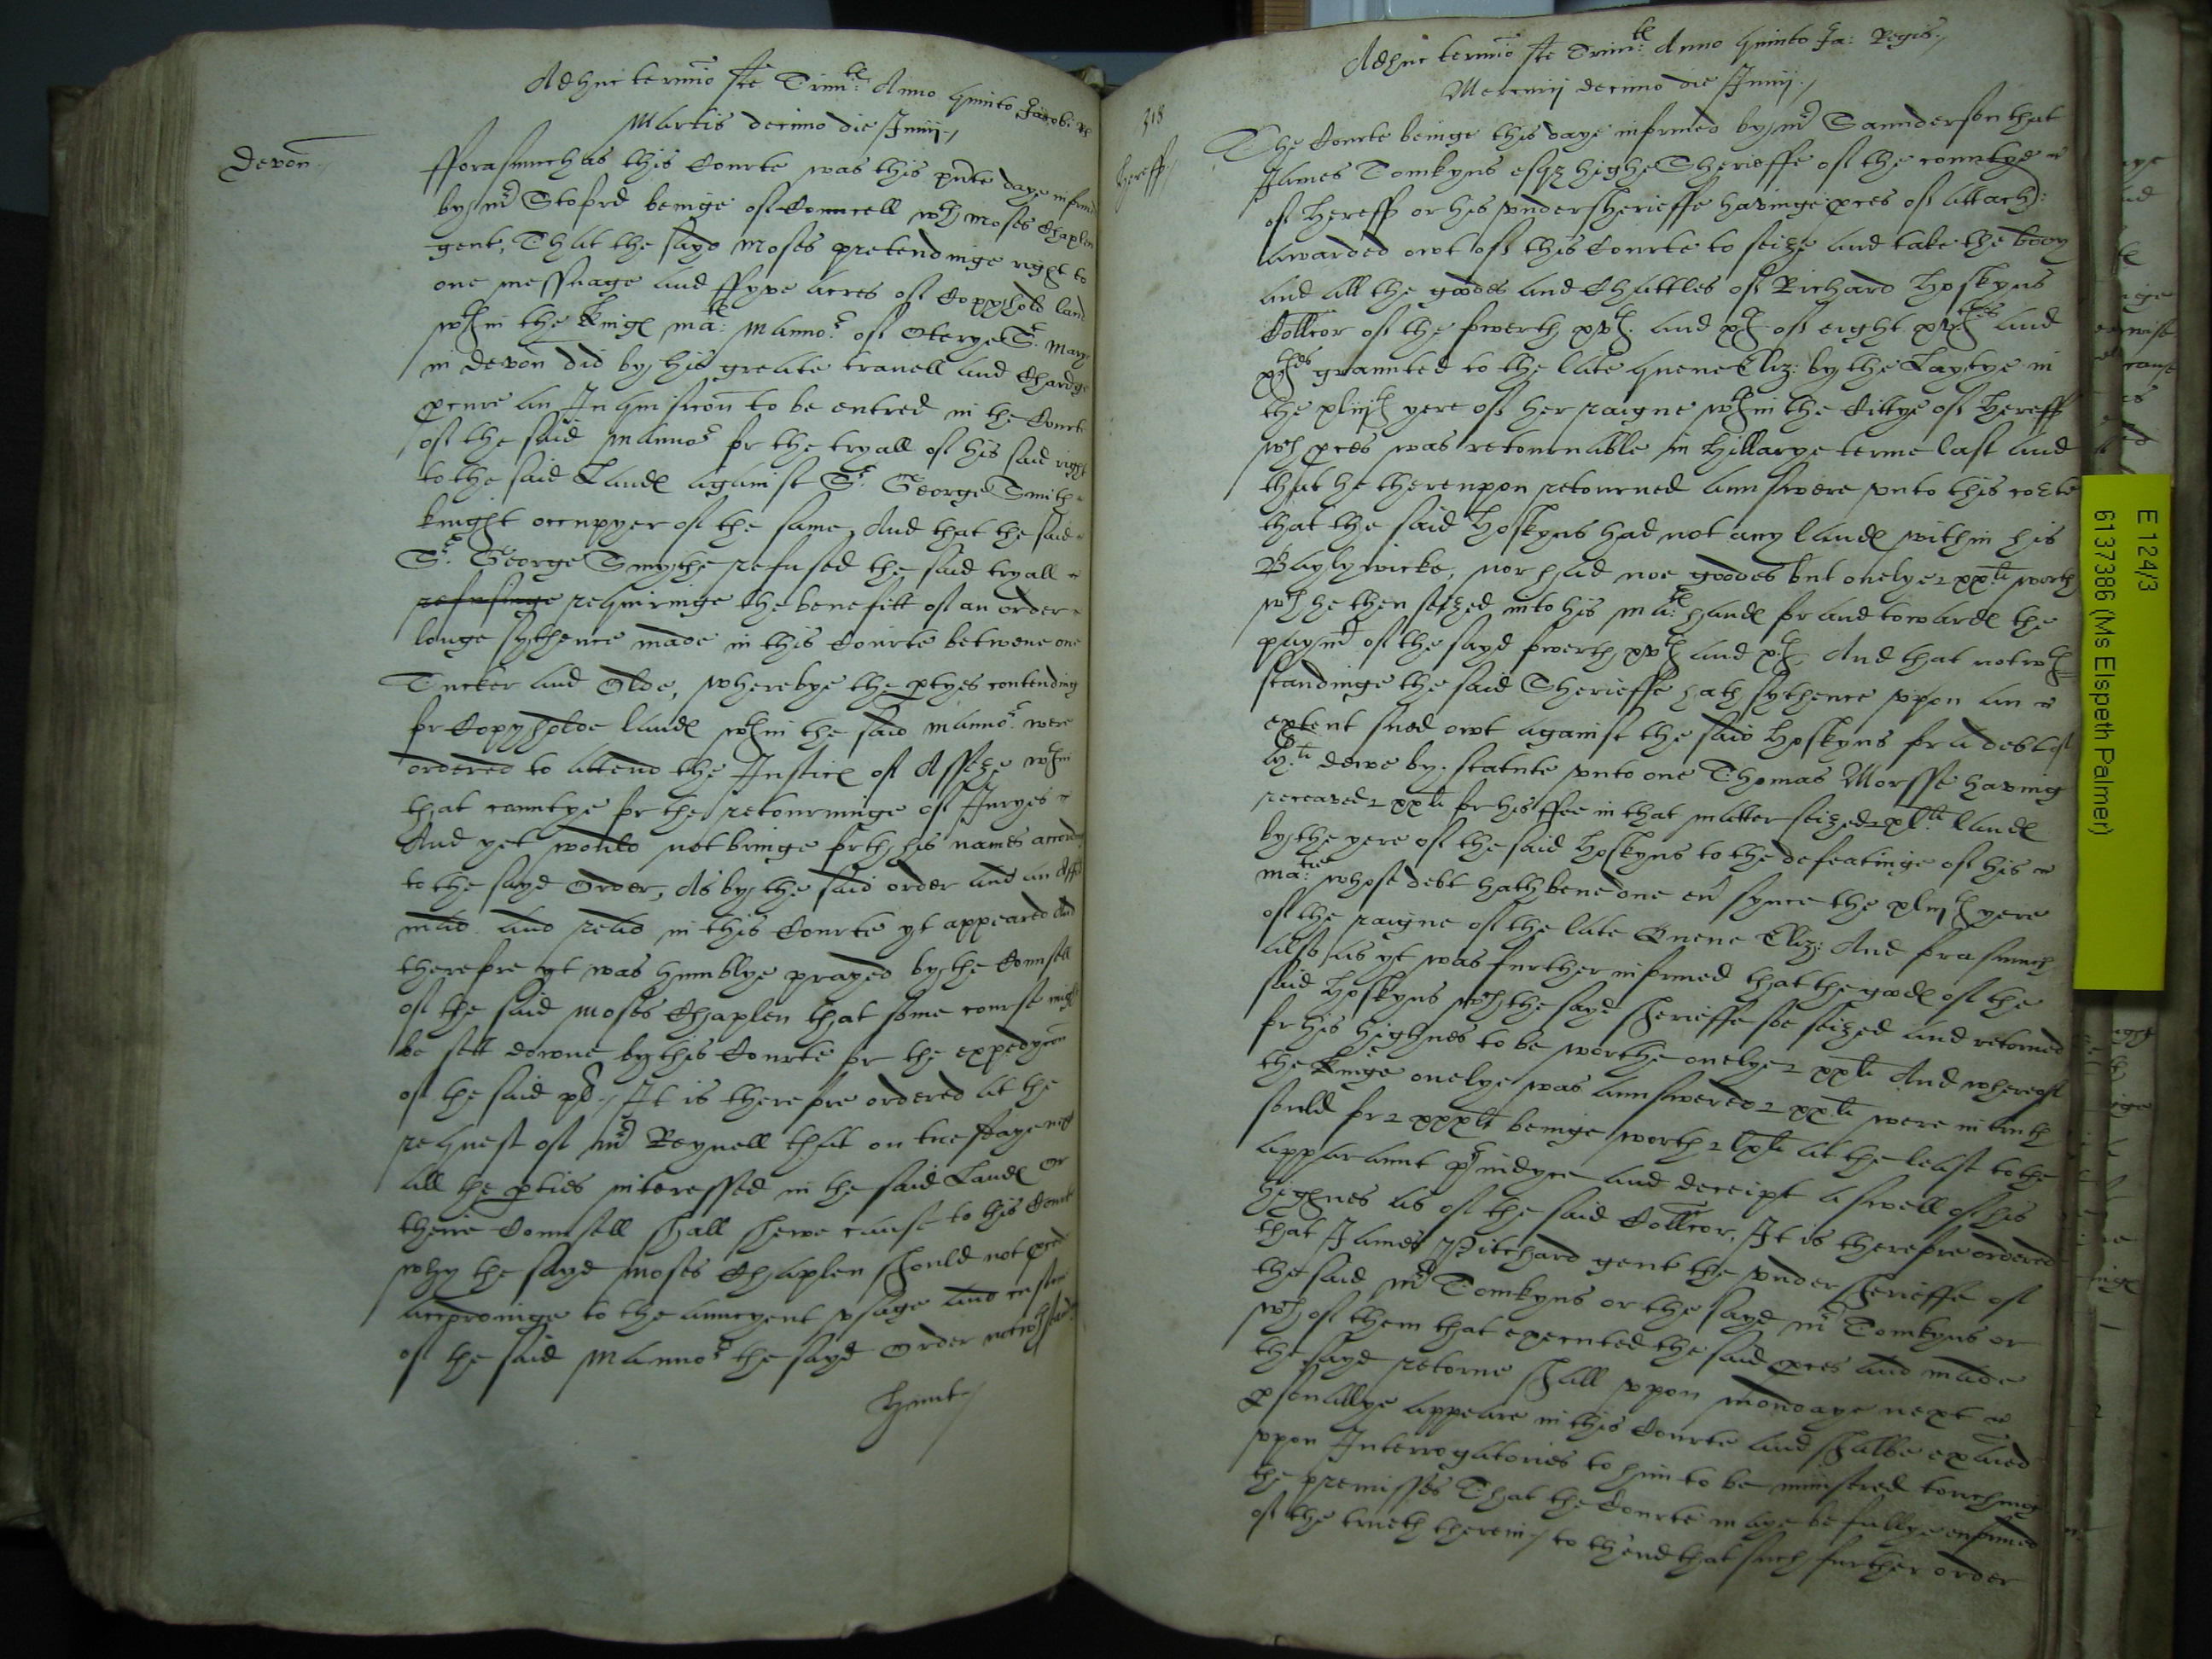 Adhuc termio ste Trinitte Anno quinto Jacobi Rs
Martis decimo die Junij
Devon
fforasmuch as this Courte was this pnte daye informed
by mr Stoford beinge of Councell wth Moses Chaplen
gent, That the sayd Moses pretendinge right to
one messuage and ffyve acres of Coppyhold land
wthin the Kings mats: Mannor of Oterye St. Mary
in devon did by his greate travell and Chardge
pcure an Inquisicon to be entred in the Courte
of the said Mannor for the tryall of his said right
to the said Lands against Sr. George Smith
knight occupyer of the same, And that the said
Sr. George Smythe refused the said tryall
refusinge requiringe the benefitt of an order
longe sythence made in this Courte betwene one
Tucker and Olde, wherebye the ptyes contending
for Copyholde lands wthin the said mannor were
ordered to attend the Justics of Assize wthin
that countye for the retourninge of Juryes
And yet would not bringe forth his names accordinge
to the sayd Order, As by the said order and an Affid
mad and read in this Courte yt appeared And
therefore yt was humblye prayed by the Counsell
of the said Moses Chaplen that some course might
be sett downe by this Courte for the expedycon
of the said It is therefore ordered at the
request of mr Reynell that on tuesdaye next
all the pties interessed in the said Lands or
theire Counsell shall shewe cause to this Courte
why the sayd Moses Chaplen should not pceed
accordinge to the auncyent usage and custom
of the said Mannor the sayd Order notwthstand
Hunt
Adhuc termio ste Trinte: Anno quinto Ja: Regis
Mercurij decimo die Junij
318
Hereff
The Courte beinge this daye informed by mr Saunderson that
James Tomkyns esqz highe Sherieffe of the countye
of Hereff or his undersherieffe havinge pces of attach:
awarded owt of this Courte to seize and take the body
and all the goodes and Chattles of Richard Hoskyns
Collcor of the fowerth xvth. and xth of eight xvthes and
xthes graunted to the late quene Eliz: by the Laytye in
the xliijth yere of her raigne wthin the Cittye of Hereff
wch pces was retournable in Hillarye terme last and
that he thereupon retourned aunswere unto this corte
that the said Hoskyns had not any lands within his
Baylywicke, nor had noe goodes but onelye xxli worth
wch he then seized into his mats: hands for and towards the
paymt of the sayd fowerth xvth and xth, And that notwth=
standinge the said Sherieffe hath sythence upon an
extent sued owt against the said Hoskyns for a debt of
li dewe by statute unto one Thomas Morsse having
receaved xxli for his ffee in that matter seized xlli lands
by the yere of the said Hoskyns to the defeatinge of his
matie: whose debt hath bene dne ev synce the xliijth yere
of the raigne of the late Quene Eliz: And forasmuch
also as yt was further informed that the goods of the
said Hoskyns wch the sayd sherieffe soe seized and retorned
for his highnes to be worthe onelye xxli And whereof
the Kinge onelye was aunswered xxli were in truth
sould for xxxli beinge worth lxli at the least to the
apparaunt piudyce and deceipt aswell of his
highnes as of the said Collcor, It is therefore ordered
that James Pitchard gent the under sherieffe of
the said mr Tomkyns or the sayd mr Tomkyns or
wch of them that executed the said pces and made
the sayd retorne shall upon mondaye next
psonallye appeare in this Courte and shalbe exaied
upon Interrogatories to him to be ministred touching
the premisses That the Courte maye be fullye enformed
of the trueth therein, to thend that such further order
E 124/3
6137386 (Ms Elspeth Palmer)